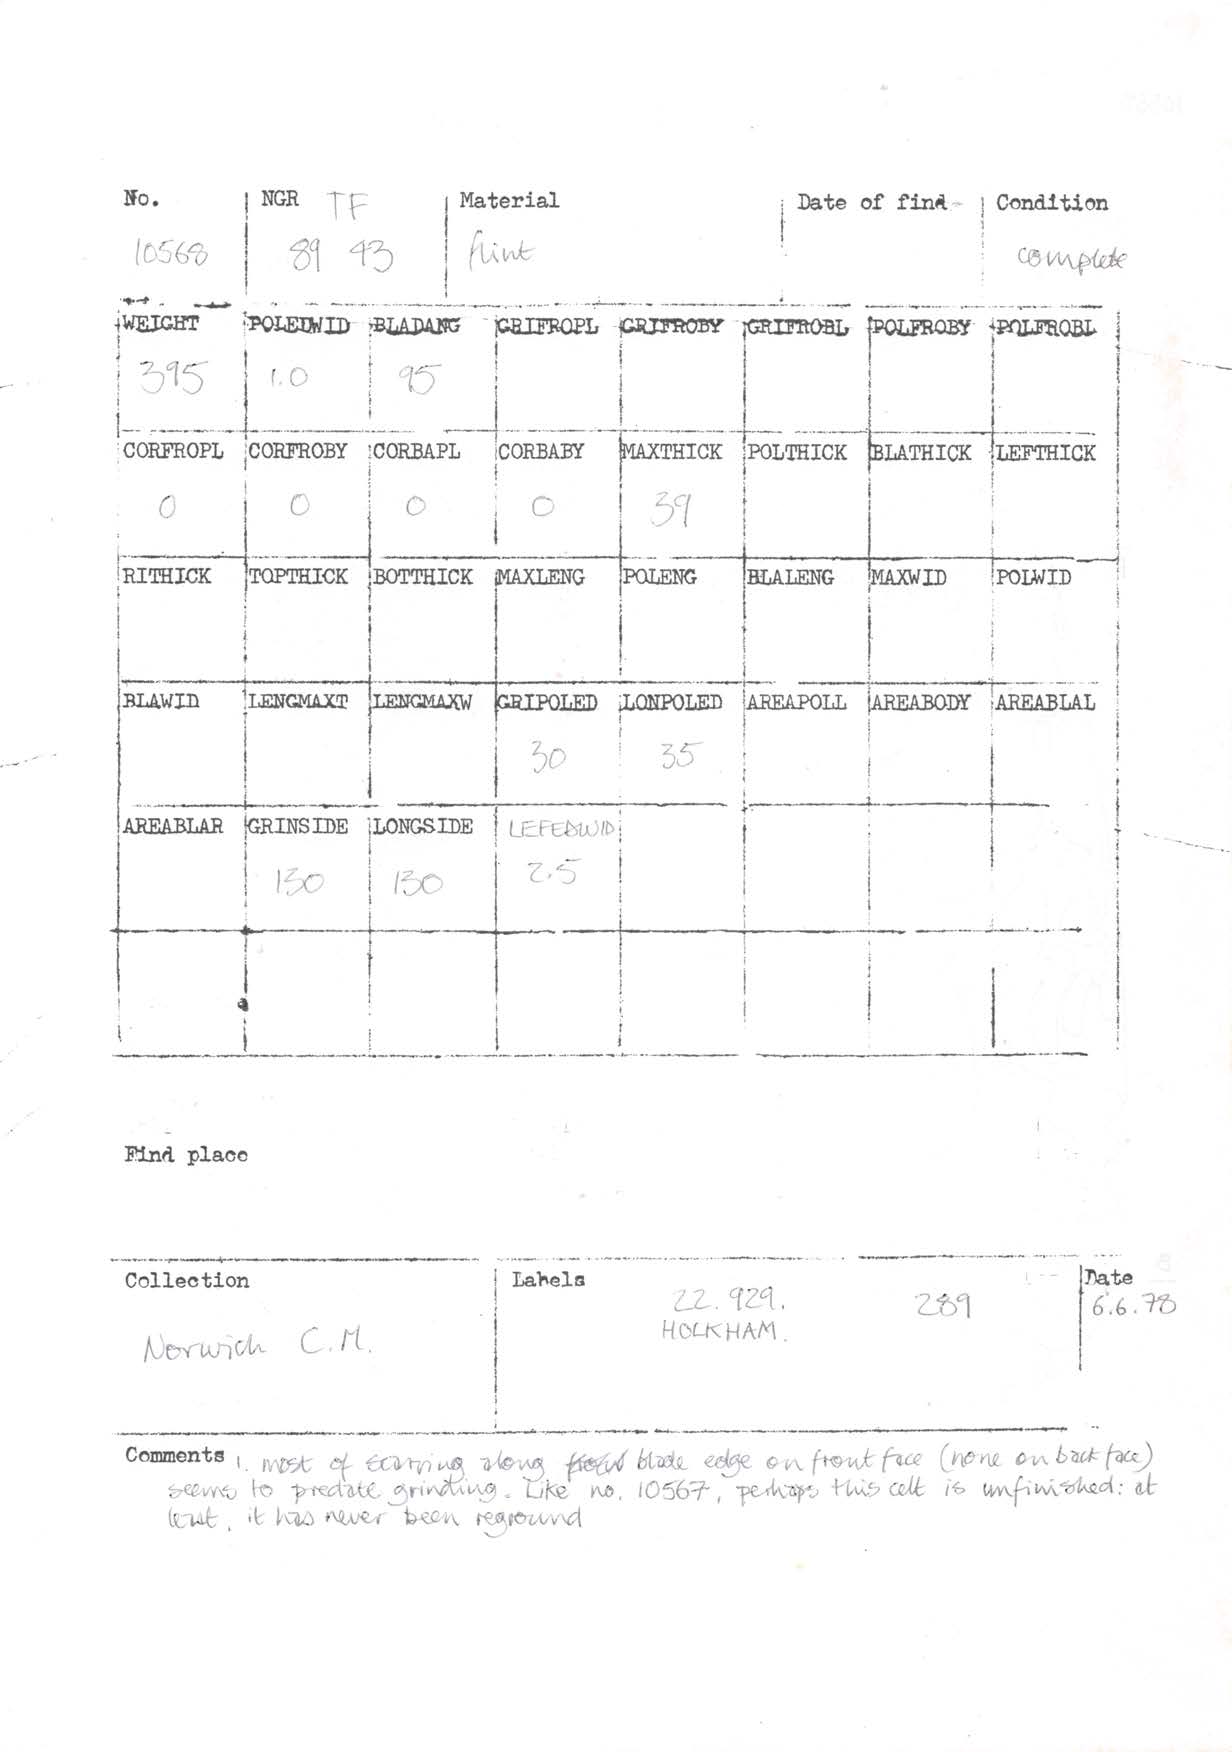 No. NGR TF Material Date of find Condition
10568 89 43 flint complete
WEIGHT POLEDWID BLADANG GRIFROPL GRIFROBY GRIFROBL POLFROBY POLFROBL
395 1.0 95
CORFROPL CORFROBY CORBAPL CORBABY MAXTHICK POLTHICK BLATHICK LEFTHICK
0 0 0 0 39
RITHICK TOPTHICK BOTTHICK MAXLENG POLENG BLALENG MAXWID POLWID
BLAWID LENGMAXT LENGMAXW GRIPOLED LONPOLED AREAPOLL AREABODY AREABLAL
30 35
AREABLAR GRINSIDE LONGSIDE LEFEDWID
130 130 2.5
Find place
Collection Labels Date
22.929. 289 6.6.78
HOLKHAM.
Norwich C.M.
Comments 1. most of scarring along blade edge on front face (none on back face)
seems to predate grinding. Like no. 10567, perhaps this celt is unfinished: at
least, it has never been reground